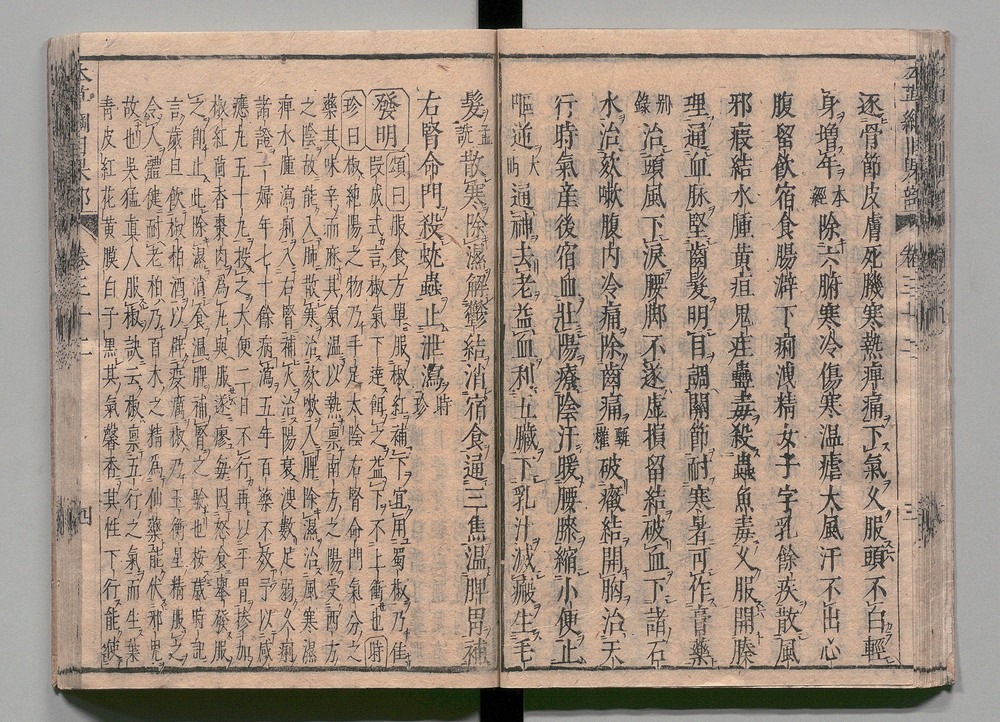 逐骨節皮膚死肌寒熱痺痛下氣久服頭不白輕
身增年本經除六腑寒冷傷寒温瘧大風汗不出心
腹留飲宿食腸澼下痢洩精女子字乳餘疾散風
邪瘕結水腫黄疸鬼疰蠱毒殺蟲魚毒久服開腠
理通血脉堅齒髮明目調關節耐寒暑可作膏藥
别錄治頭風下淚腰脚不遂虚損留結破血下諸石
水治欬嗽腹内冷痛除齒痛甄權破癥結開胸治天
行時氣産後宿血壯陽療陰汗暖腰膝縮小便止
嘔逆大明通神去老益血利五臟下乳汁滅瘢生毛
髮孟詵散寒除濕解鬱結消宿食通三焦温脾胃補
右腎命門殺蚘蟲止泄瀉時珍
發明頌曰服食方單服椒紅補下宜用蜀椒乃佳
段成式言椒氣下達餌之益下不上衝也時
珍曰椒純陽之物乃手足太陰右腎命門氣分之
藥其味辛而麻其氣温以熱禀南方之陽受西方
之陰故能入肺散寒治欬嗽入脾除濕治風寒濕
痺水腫瀉痢入右腎補火治陽衰溲數足弱久痢
諸證一婦年七十餘病瀉五年百藥不效予以感
應丸五十丸投之大便二日不行再以平胃散加
椒紅茴香棗肉爲丸與服遂瘳每因怒食舉發服
之即止此除濕消食温脾補腎之驗也按歲時記
言歲旦飲椒柏酒以辟疫癘椒乃玉衡星精服之
令人體健耐老柏乃百木之精爲仙藥能伏邪鬼
故也吳猛真人服椒訣云椒禀五行之氣而生葉
青皮紅花黄膜白子黑其氣馨香其性下行能使
四